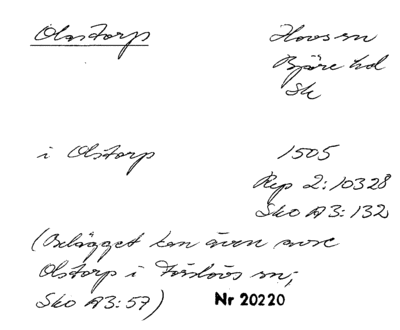 Olastorp Hovs sn
Bjäre hd
Sk
i Olstorp 1505
Rep 2:10328
Sko A3:132
(Belägget kan även avse
Olstorp i Förslövs sn;
Sko A3:57) Nr 20220